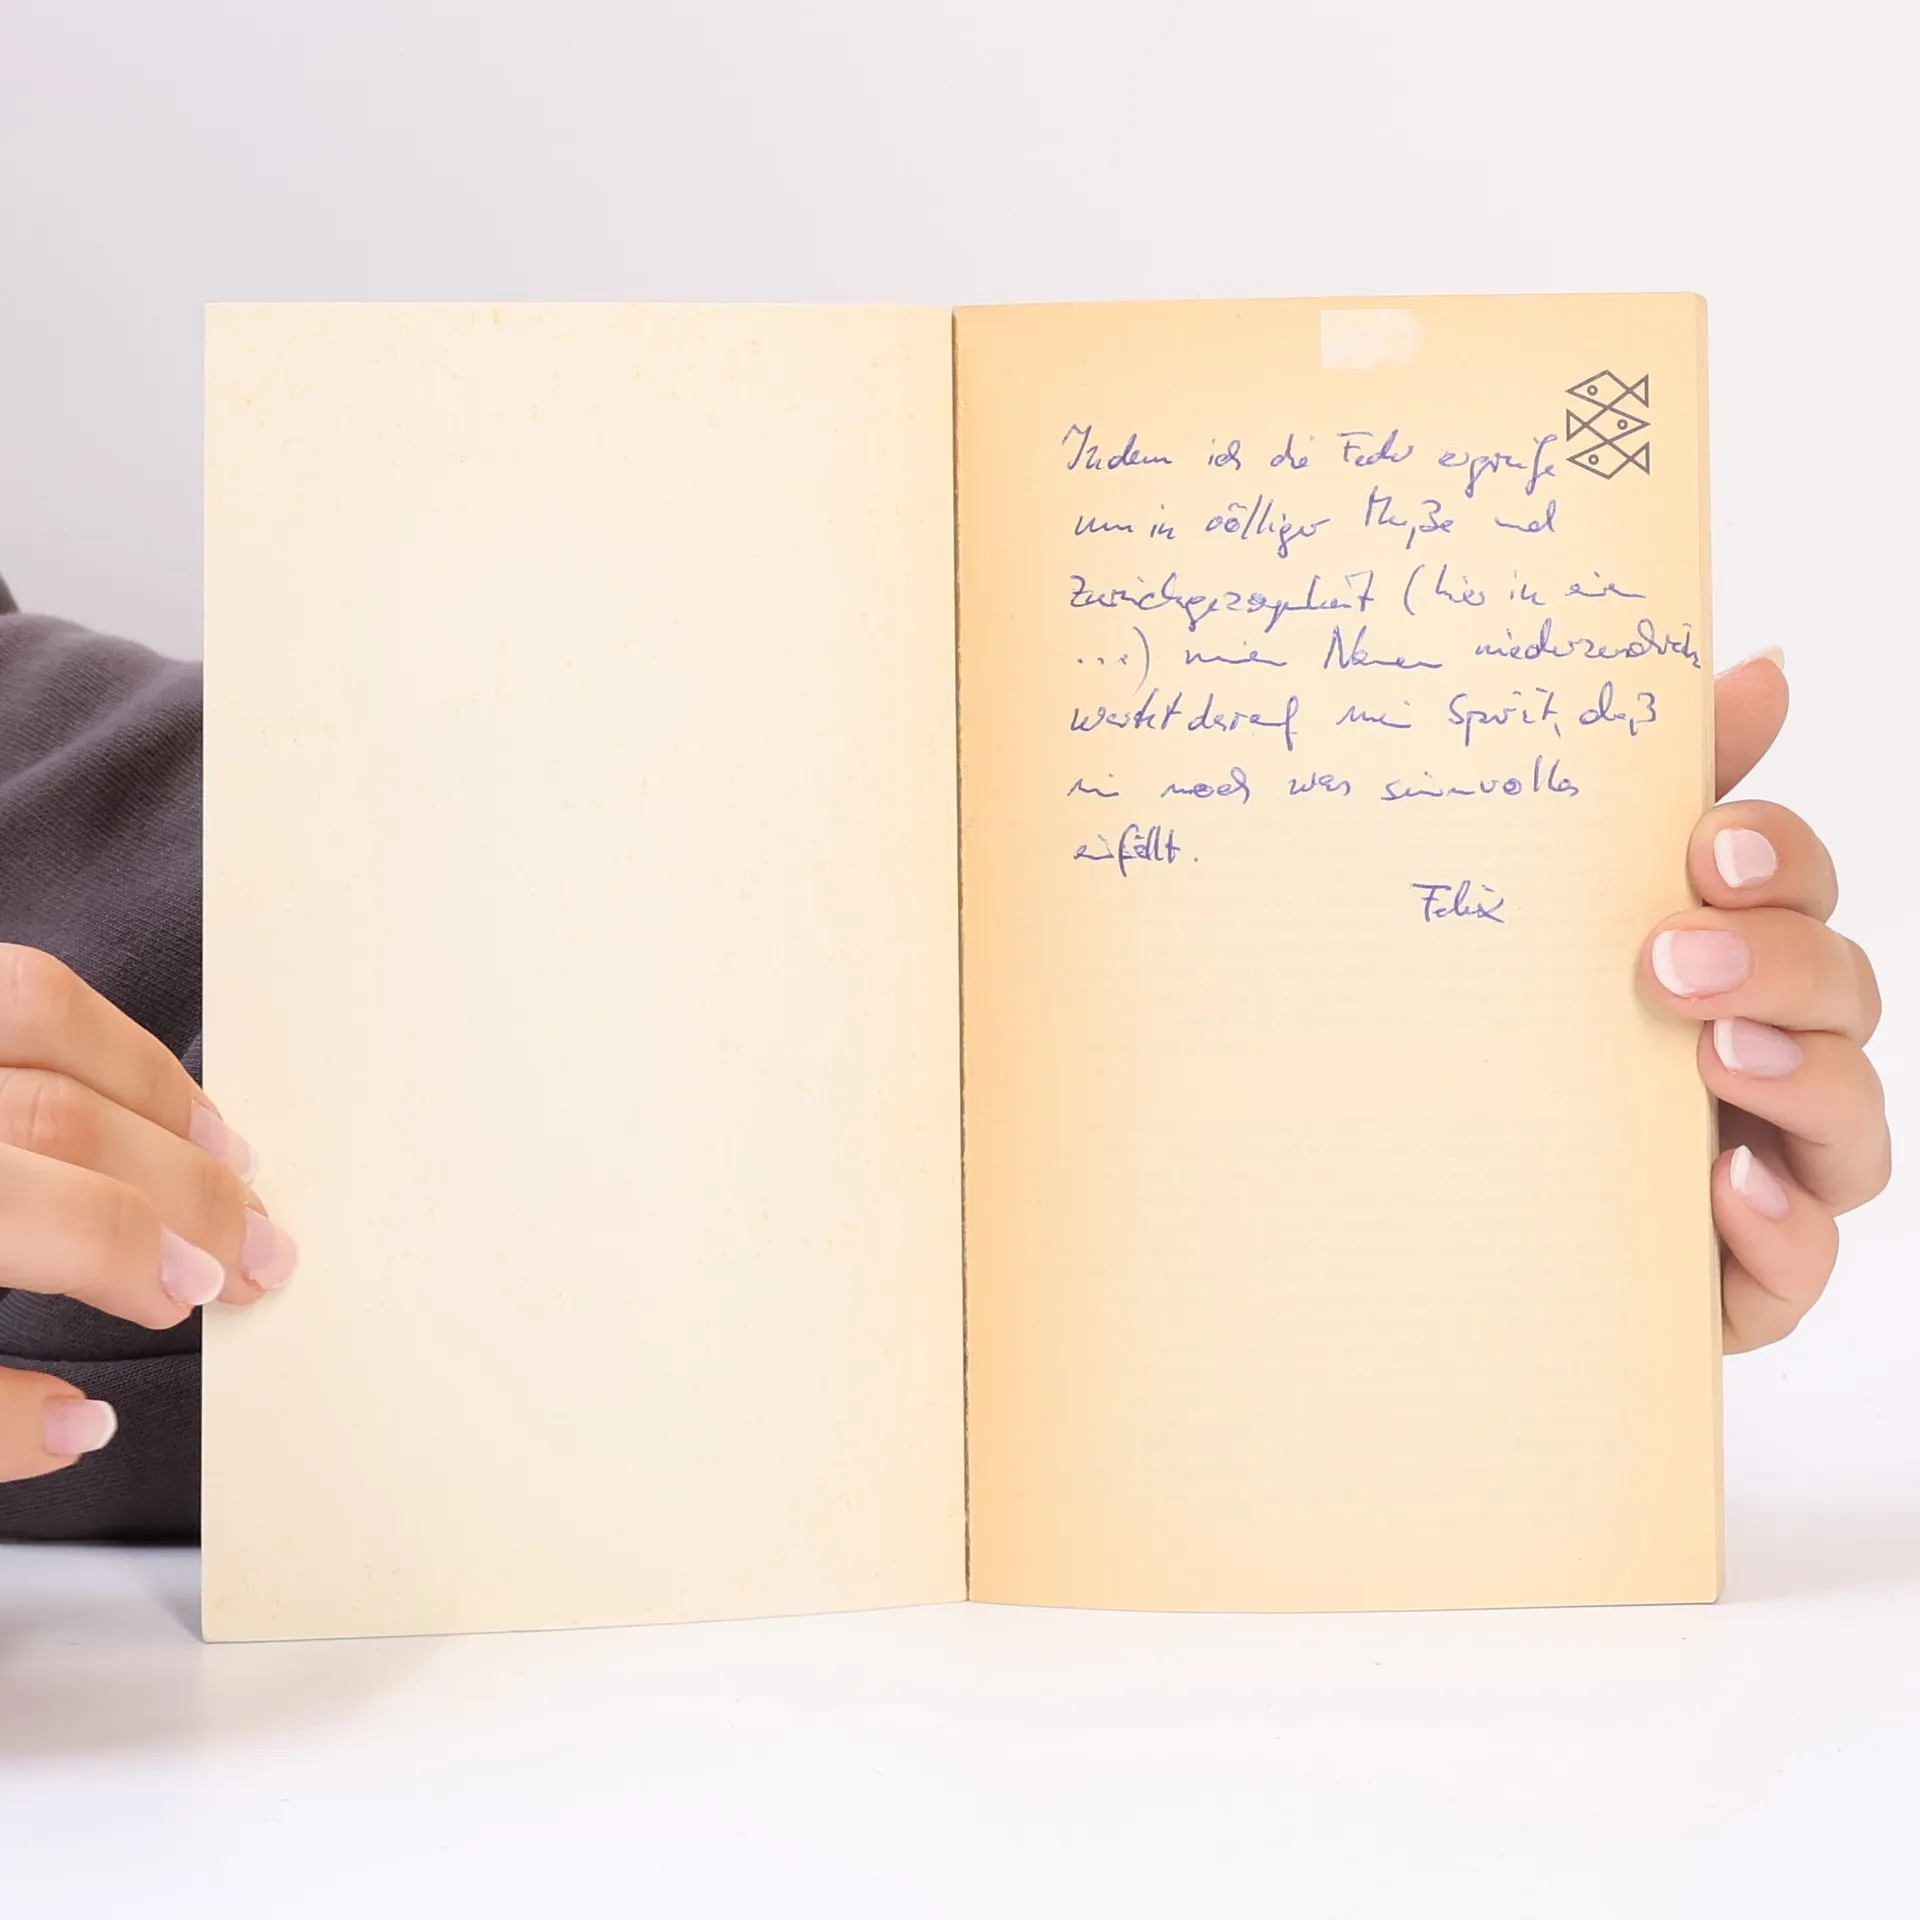 Indem ich die Feder ergreife
um in völliger Muße und
Zurückgezogenheit (hier in ein
...) meinen Namen niederzuschreib
wartet darauf mein Spirit, daß
mir noch was sinnvolles
einfällt.
Felix